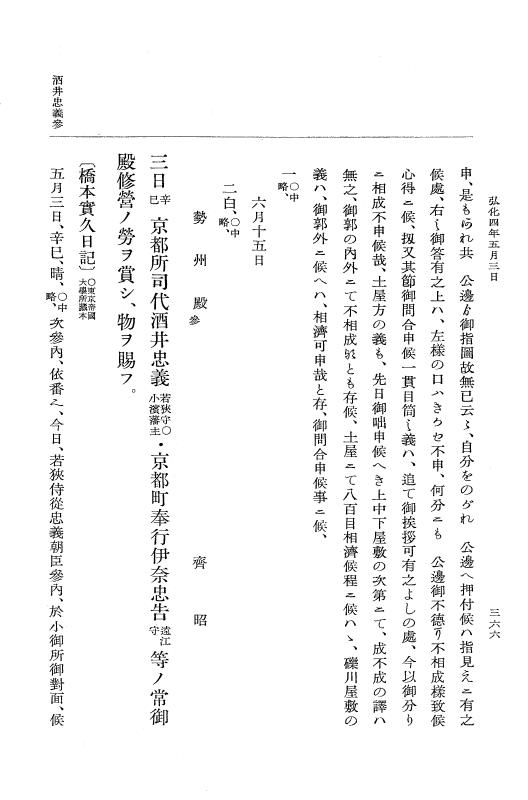 弘化四年五月三日
三六六
申、是もられ共　公邊ゟ御指圖故無已云々、自分をのがれ　公邊へ押付候ハ指見え〓有之
候處、右〻御答有之上ハ、左樣の口ハきらせ不申、何分ニも　公邊御不德〓不相成樣致候
心得ニ候、扨又其節御問合申候一貫目筒〻義ハ、追て御挨拶可有之よしの處、今以御分り
ニ相成不申候哉、土屋方の義も、先日御咄申候へき上中下屋敷の次第ニて、成不成の譯ハ
無之、御郭の內外ニて不相成〓とも存候、土屋ニて八百目相濟候程ニ候ハヽ、礫川屋敷の
義ハ、御郭外ニ候ヘハ、相濟可申哉と存、御問合申候事ニ候、
一〇中略、
六月十五日
二白、〇中略、
勢州殿參
齊昭
三日辛巳京都所司代酒井忠義若狹守〇小濱藩主・京都町奉行伊奈忠告遠江守等ノ常御
殿修營ノ勞ヲ賞シ、物ヲ賜フ。
〔橋本實久日記〕〇東京帝國大學所藏本
五月三日、辛巳、晴、〇中略、次參內、依番之、今日、若狹侍從忠義朝臣參內、於小御所御對面、候
酒井忠義參